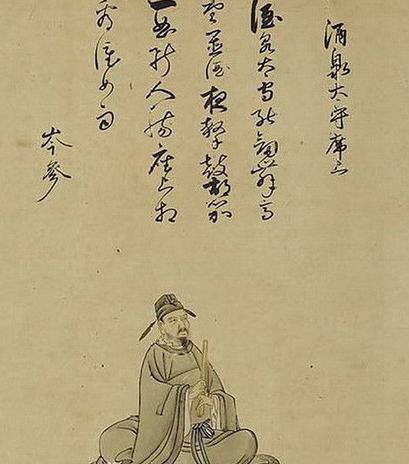 酒泉太守席上
酒泉太守能劔舞高
堂置酒夜擊鼓胡笳
一曲斷人腸座上相
看淚如雨
岑參